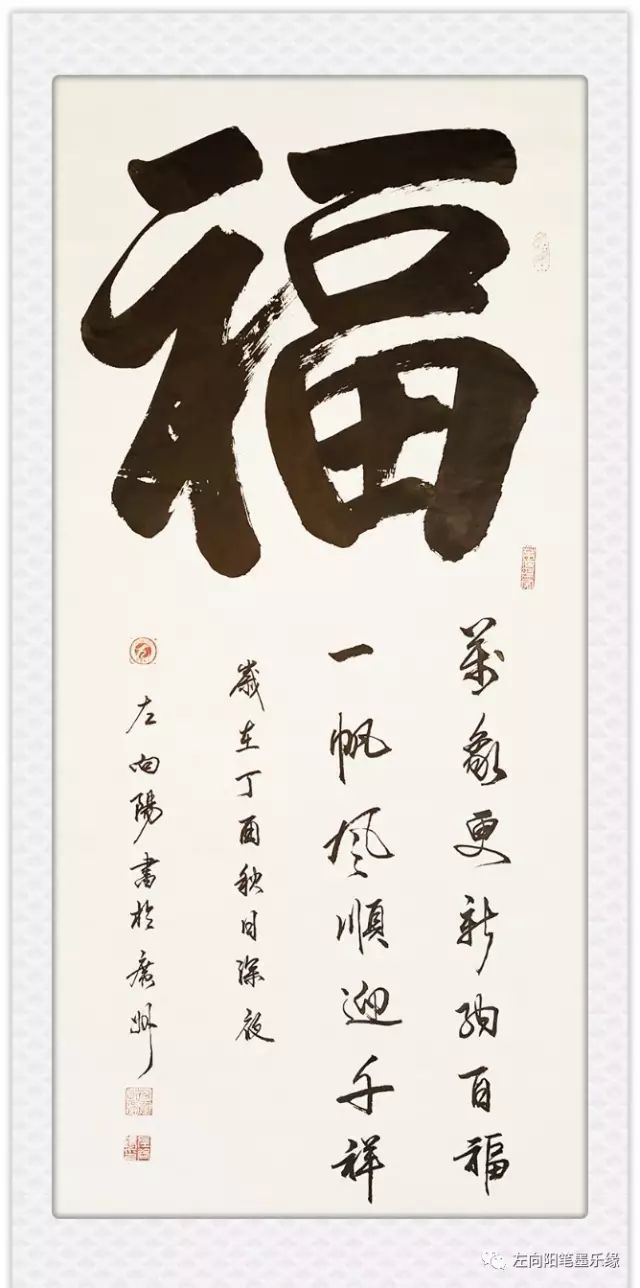 福
萬象更新納百福
一帆風順迎千祥
歲在丁酉秋日深夜
左向陽書於廣州
左向阳笔墨乐缘